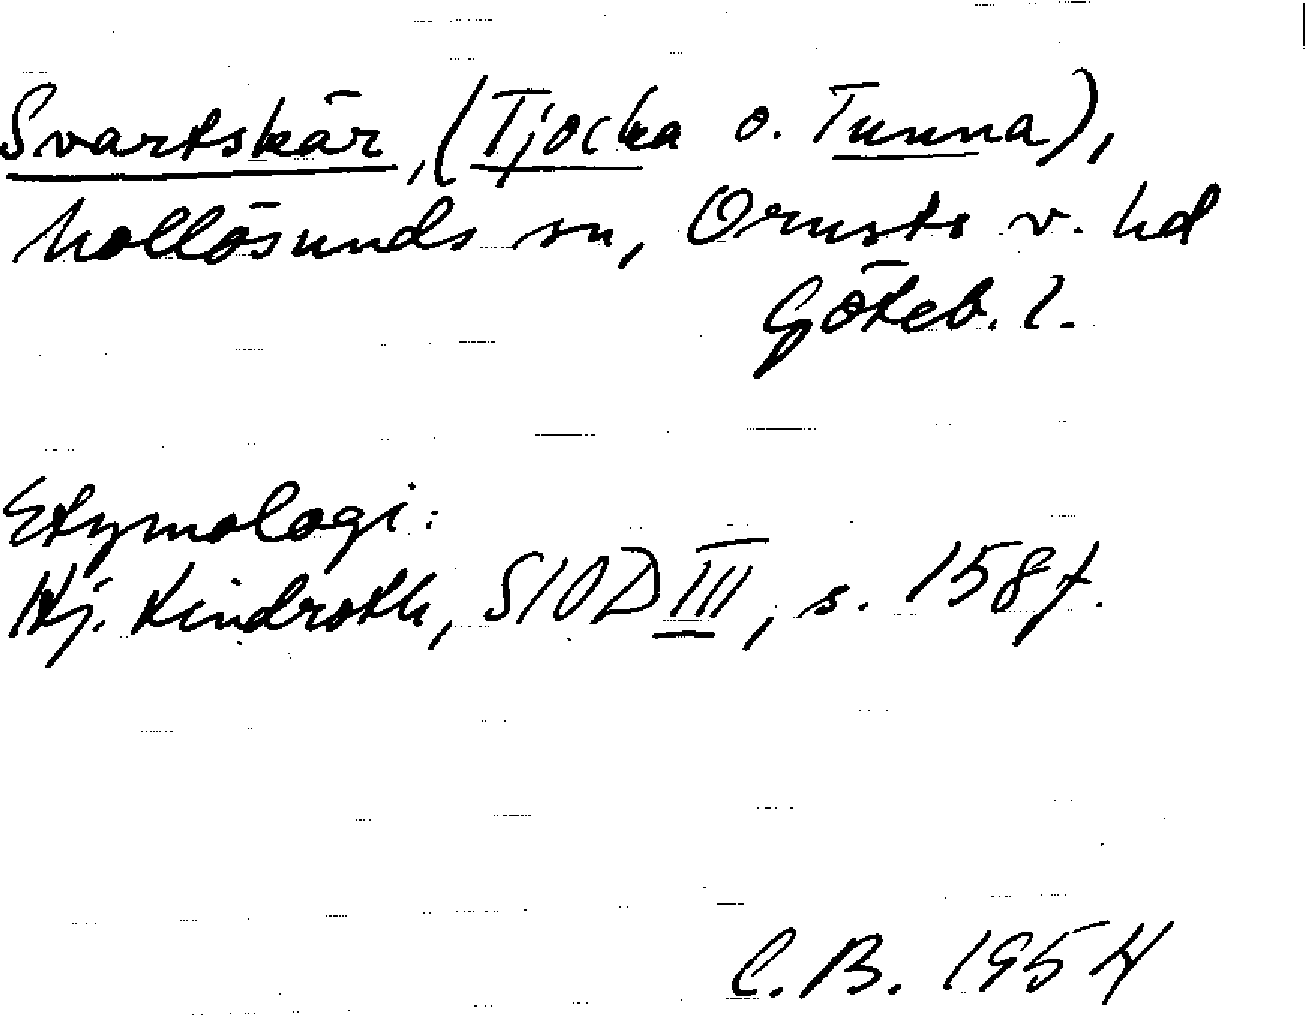 Svartskär, (Tjocka o. Tunna),
Mollösunds sn, Orusts v. hd
Göteb. l.
Etymologi:
Hj. Lindroth, SIOD III, s. 158 f.
C.B. 1954